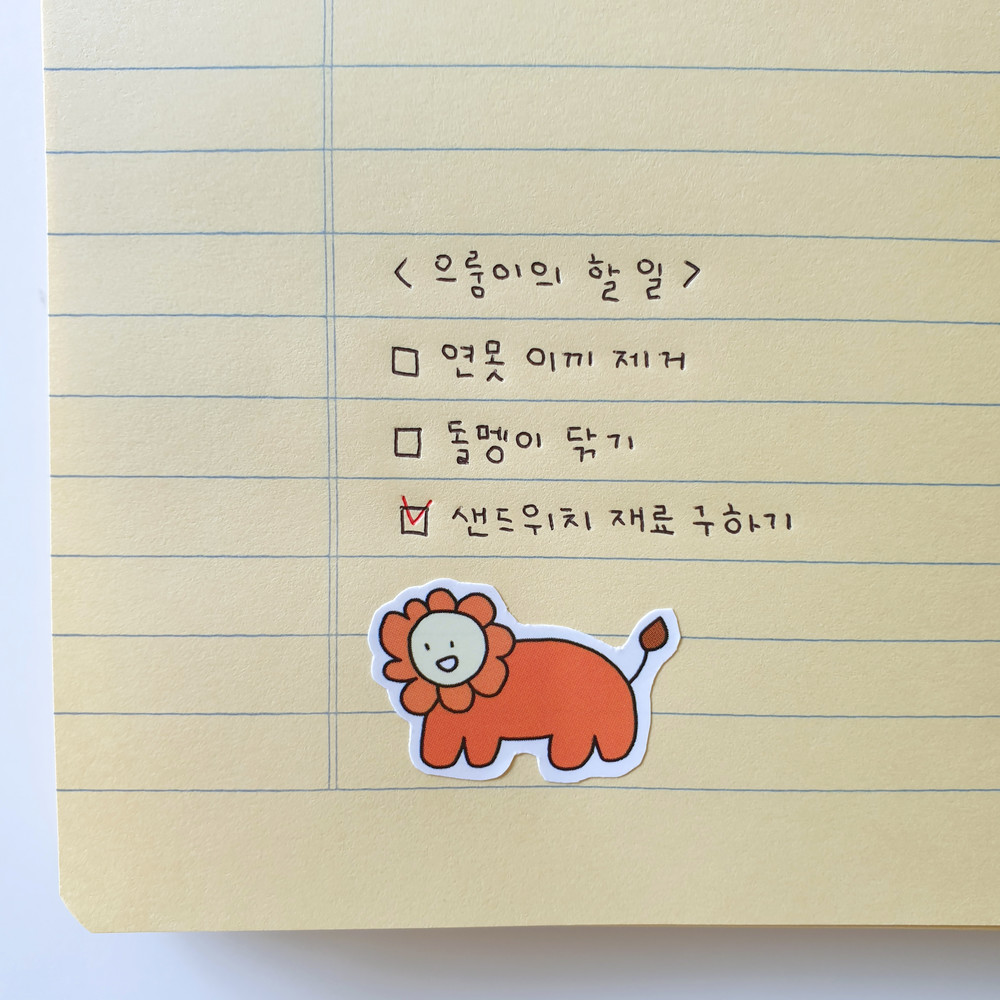 <으룽이의 할 일>
□ 연못 이끼 제거
□ 돌멩이 닦기
☑ 샌드위치 재료 구하기